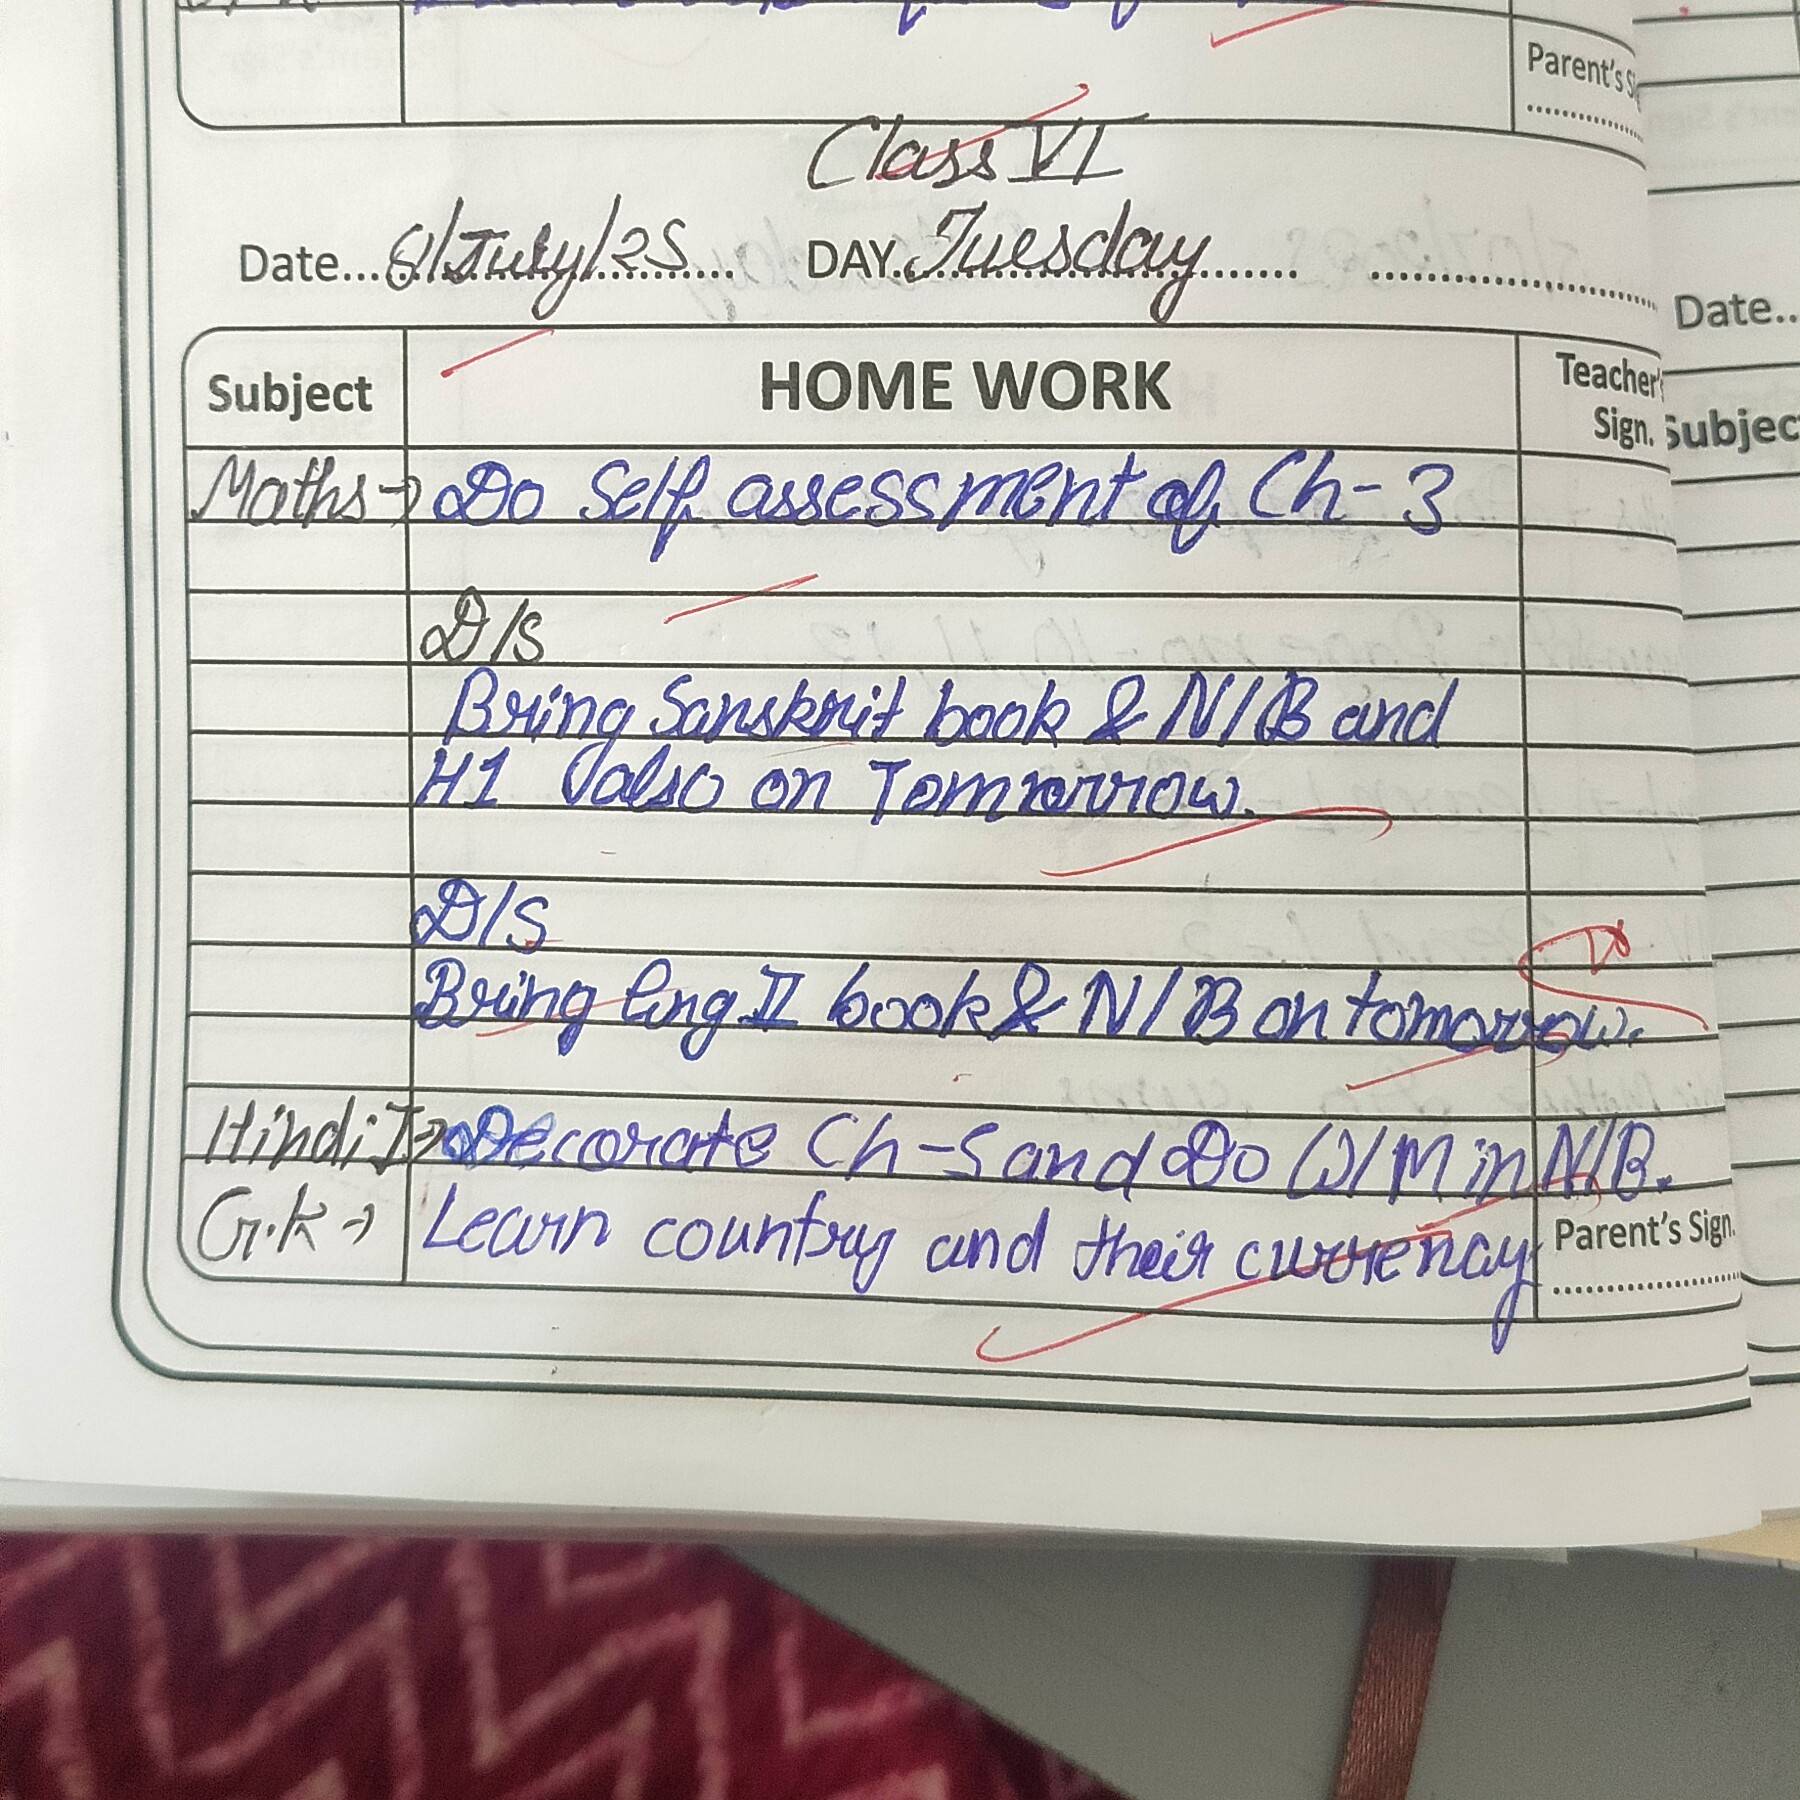 Parent's
Class VI
Date...8/July/25........ DAY..Tuesday.......
Date..
Subject
HOME WORK
Teacher's
Sign.
Subjec
Maths→ Do Self assessment of Ch-3
D/S
Bring Sanskrit book & N/B and
H1 also on Tomorrow.
D/S
Bring Eng II book & N/B on tomorrow.
Hindi I→ Decorate Ch-5 and Do W/M in N/B.
G.K → Learn country and their currency
Parent's Sign.